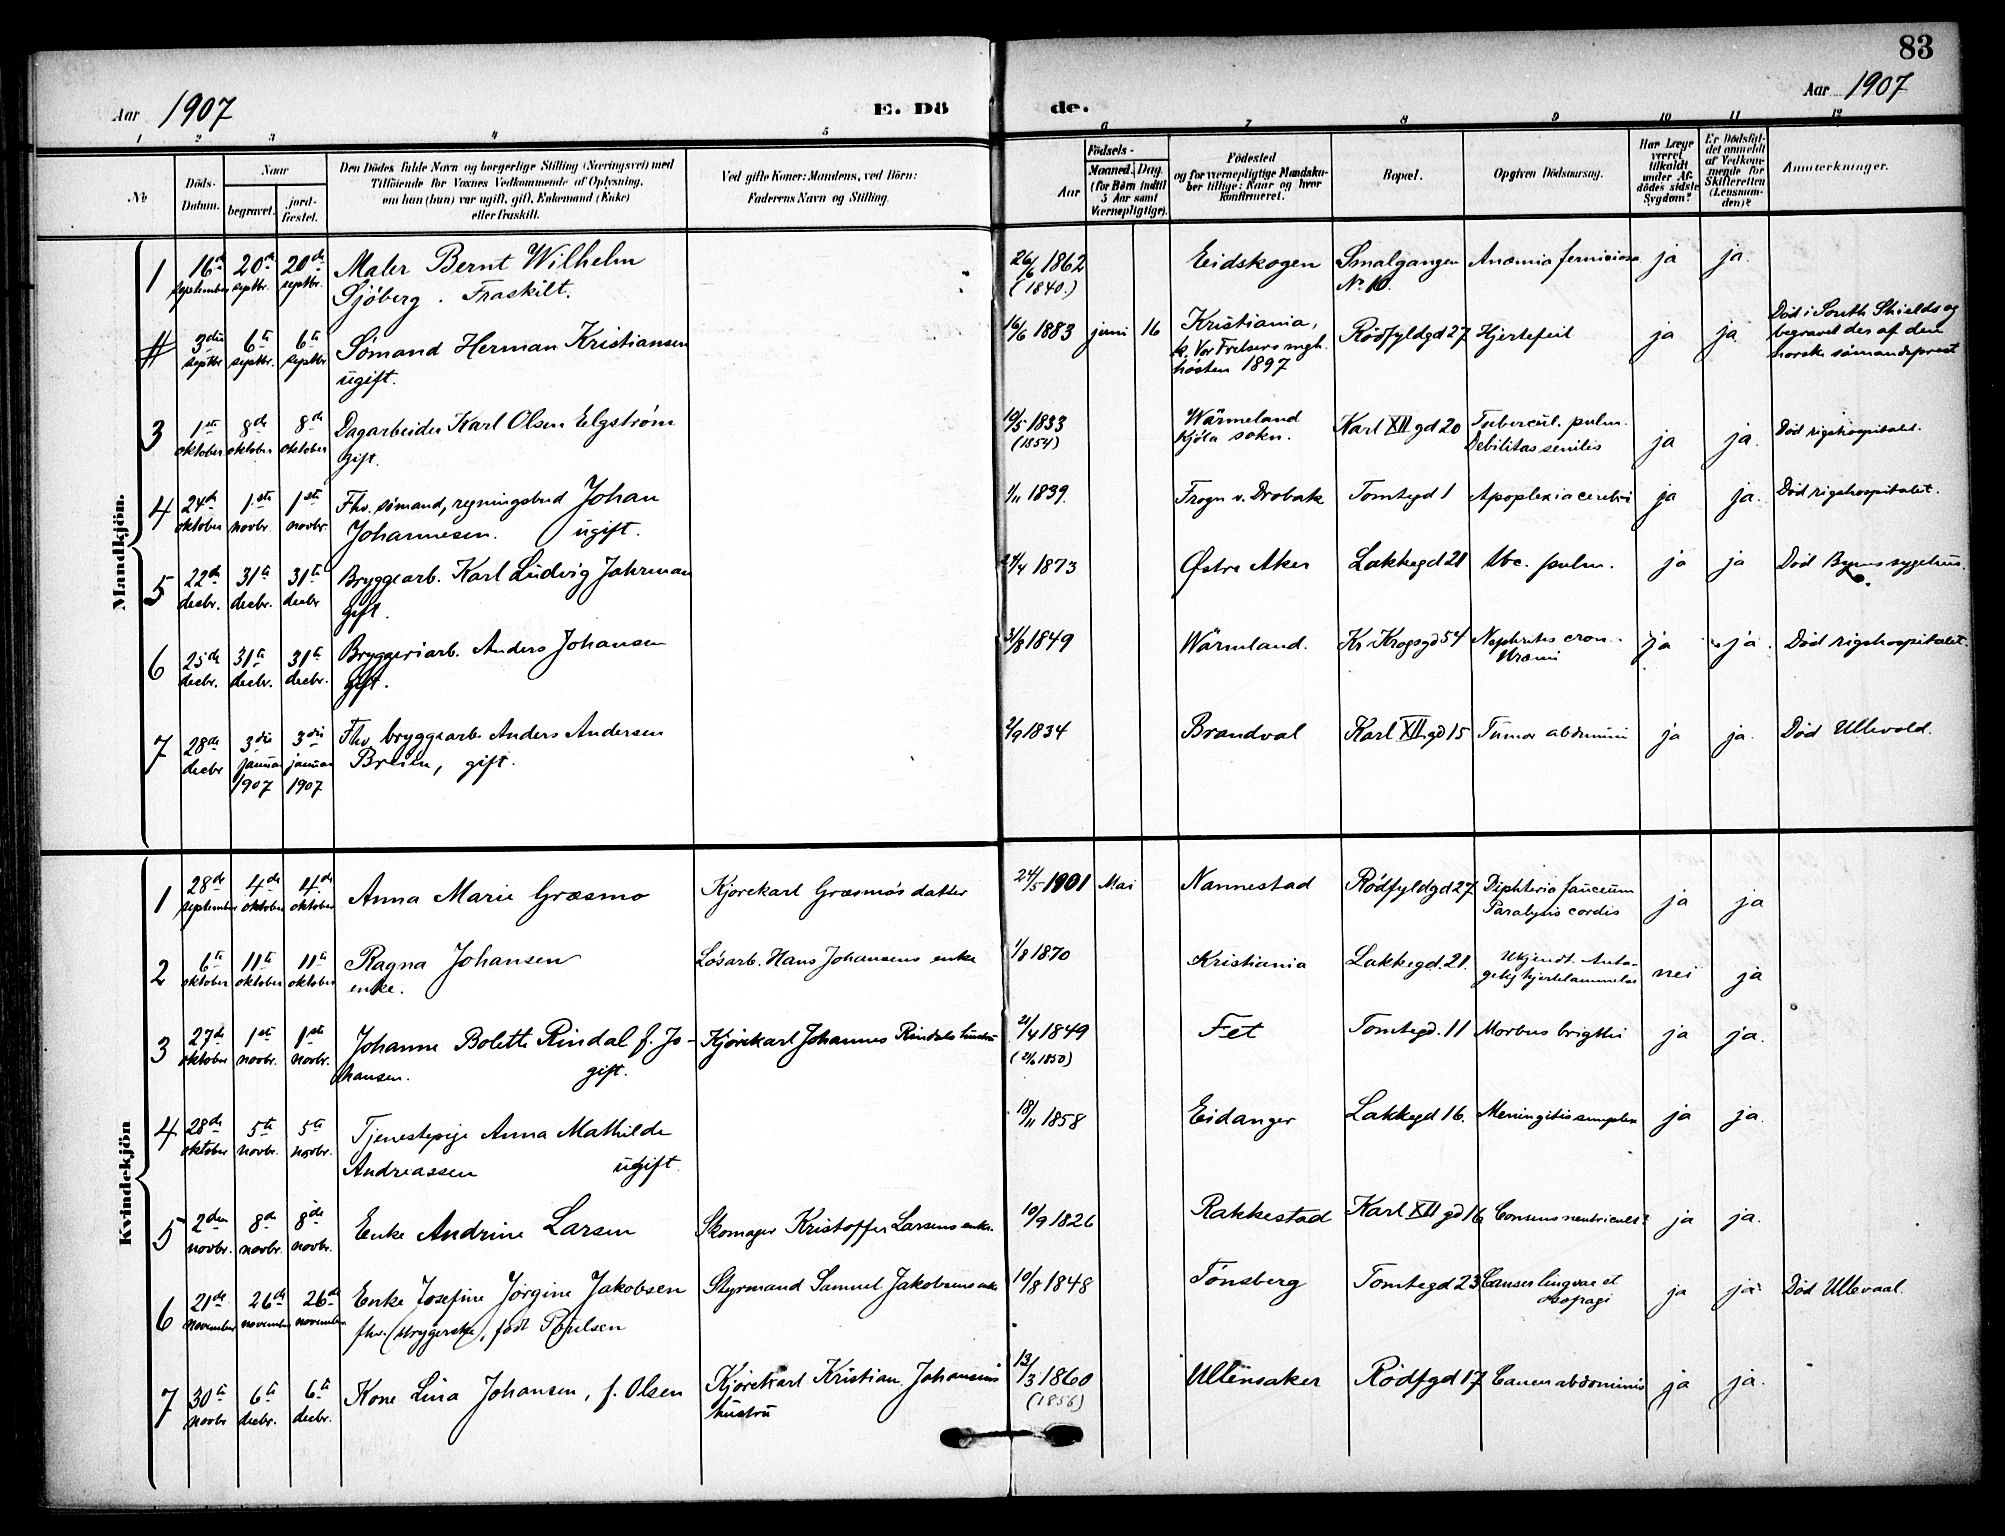 83
Aar 1907
E. Dö
de.
Aar 1907
1 2 3 4 5 6 7 8 9 10 11 12
No
Döds-Datum.
Naar
begravet.
jord-fæstet.
Den Dödes fulde Navn og borgerlige Stilling (Næringsvei) med
Tilföiende for Voxnes Vedkommende af Oplysning,
om han (hun) var ugift, gift, Enkemand (Enke)
eller fraskilt.
Ved gifte Koner: Mandens, ved Börn:
Faderens Navn og Stilling.
Födsels-
Aar
Maaned. Dag.
(for Börn indtil
5 Aar samt
Værnepligtige).
Födested
og for værnepligtige Mandskaber tillige: Naar og hvor
konfirmeret.
Bopæl.
Opgiven Dödsaarsag.
Har Læge
været
tilkaldt
under Afdödes sidste
Sygdom?
Er Dödsfaldet anmeldt
af Vedkommende for
Skifteretten
(Lensmanden)?
Anmærkninger.
Mandkjön.
1 16de september 20de septbr. 20de septbr. Maler Bernt Wilhelm 26/6 1862 Eidskogen Smalgangen Anæmia perniciosa ja ja.
Sjöberg. Fraskilt. (1840.) No 10.
# 3die septbr 6te septbr. 6te septbr Sömand Herman Kristiansen 16/6 1883 juni 16 Kristiania, Rödfyldgd 27 Hjertefeil ja ja Död i South Shields og
ugift. k. Vor Frelsers mgh. begravet der af den
hösten 1897 norske sömandsprest
3 1ste oktober 8de oktober 8de oktober Dagarbeider Karl Olsen Elgström 10/5 1833 Wärmeland Karl XII gd 20 Tubercul. pulm. ja ja. Död rigshospitalet.
gift. (1854) sokn. Debilitas senilis
4 24de oktober 1ste novbr. 1ste novbr. Fhv. sömand, regningsbud Johan 1/11 1839. Frogn v. Dröbak Tomtegd 1 Apoplexia cerebri ja ja. Död rigshospitalet.
Johannesen. ugift.
5 22de decbr. 31te decbr. 31te decbr Bryggearb. Karl Ludvig Jahrman 24/4 1873 Østre Aker Lakkegd 21 Tbc. pulm. ja ja Död Byens sygehus.
gift.
6 25de decbr. 31te decbr. 31te decbr. Bryggeriarb. Anders Johansen 31/8 1849 Wärmland. Kr Krogsgd 54 Nephritis cron. ja ja. Död rigshospitalet.
gift. Uræmi
7 28de decbr 3die januar 1907 3die januar 1907 Fhv. bryggearb. Anders Andersen 2/9 1834 Brandval Karl XII gd 15 Tumor abdomini ja ja. Död Ullevold.
gift.
Kvindekjön
1 28de september 4de oktober 4de oktober Anna Marie Græsmo Kjörekarl Græsmös datter 24/5 1901 Mai Nannestad Rödfyldgd 27 Diphteria faucium ja ja
Paralysis cordis
2 6te oktober 11te oktober 11te oktober Ragna Johansen Lösarb. Hans Johansens enke 1/8 1870 Kristiania Lakkegd. 21. Ukjendt. Anta- nei ja
enke. gelig hjertelammelse
3 27de oktober 1ste novbr. 1ste novbr. Johanne Bolette Rindal f. Jo- Kjörekarl Johannes Rindals hustru 21/4 1849 Fet Tomtegd. 11 Morbus brigthi ja ja.
hansen. gift. (21/6 1850)
4 28de oktober 5te novbr. 5te novbr. Tjenestepige Anna Mathilde 18/11 1858 Eidanger Lakkegd 16. Meningitis simplex ja ja.
Andreassen ugift.
5 2den novbr. 8de novbr. 8de novbr. Enke Andrine Larsen Skomager Kristoffer Larsens enke. 10/9 1826 Rakkestad Karl XII gd 16 ja ja.
6 21de november 26de november 26de november Enke Josefine Jörgine Jakobsen Styrmand Samuel Jakobsens enke 10/8 1848 Tönsberg Tomtegd 23 Cancer lingvae et ja ja. Död Ullevaal.
fhv. (strygerske), född Poulsen
7 30te novbr 6te decbr. 6te decbr. Kone Lina Johansen, f. Olsen Kjörekarl Kristian Johansens 13/3 1860 Ullensaker Rödfgd 17 Cancer abdominis ja ja.
hustru (1856)